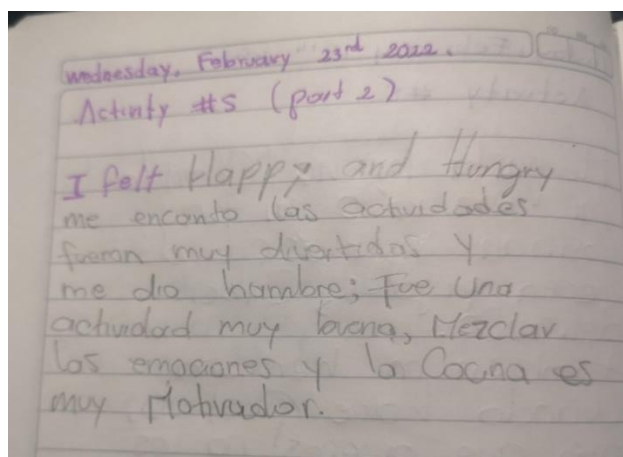 Wednesday, February 23rd 2022.
Activity #5 (part 2)
I felt Happy and Hungry
me encanto las actividades
fueron muy divertidas y
me dio hambre; Fue una
actividad muy buena, Mezclar
las emociones y la Cocina es
muy Motivador.